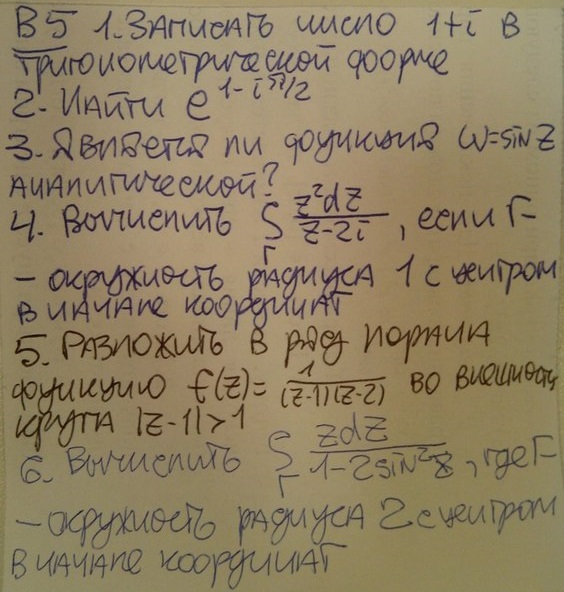 В5 1. Записать число 1+i в
тригонометрической форме
2. Найти e^{1-iπ/2}
3. Является ли функция ω=sin z
аналитической?
4. Вычислить ∫_Γ z²dz/(z-2i), если Г-
- окружность радиуса 1 с центром
в начале координат
5. Разложить в ряд Лорана
функцию f(z)= 1/((z-1)(z-2)) во внешность
круга |z-1|>1
6. Вычислить ∫_Γ zdz/(1-2sin²z), где Г-
- окружность радиуса 2 с центром
в начале координат